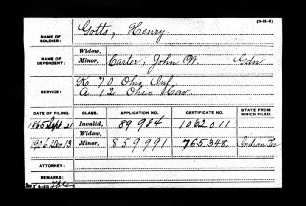 (3-H-3)
NAME OF SOLDIER: Gotts, Henry
NAME OF DEPENDENT: Widow,
Minor, Carter, John W. Gdn
SERVICE: K 70 Ohio Inf
A 12 Ohio Cav
DATE OF FILING. CLASS. APPLICATION NO. CERTIFICATE NO. STATE FROM WHICH FILED.
Sept 21 Invalid, 89984 1062011
Widow,
Minor, 859991 765348
ATTORNEY:
REMARKS: